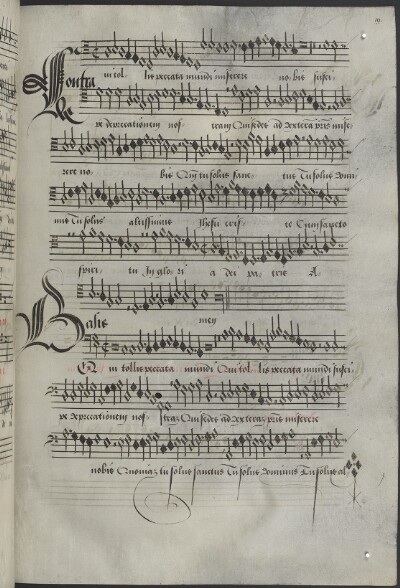 Contra
in tol lis peccata mundi miserere no bis susci
pe deprecationem nos tram Qui sedes ad dexteram pris mise
rere no bis Qm tu solus sanc tus Tu solus domi
nus Tu solus altissimus Jhesu cris te Cum sancto
spiri tu In glo ri a dei pa tris A
men
Basis
Qui tollis peccata mundi Qui tol lis peccata mundi susci
pe deprecationem nos tram Qui sedes ad dexteram pris miserere
nobis Quoniam tu solus sanctus Tu solus dominus Tu solus al